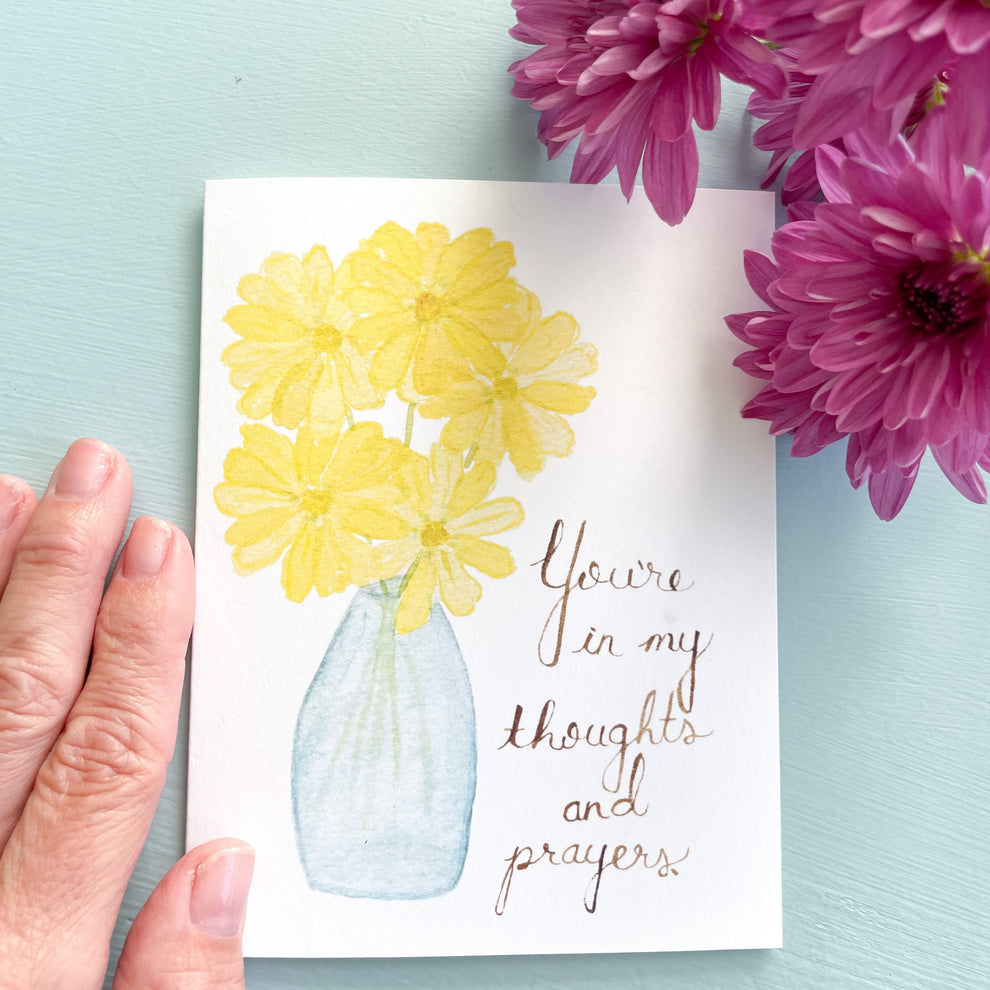 You're
in my
thoughts
and
prayers.